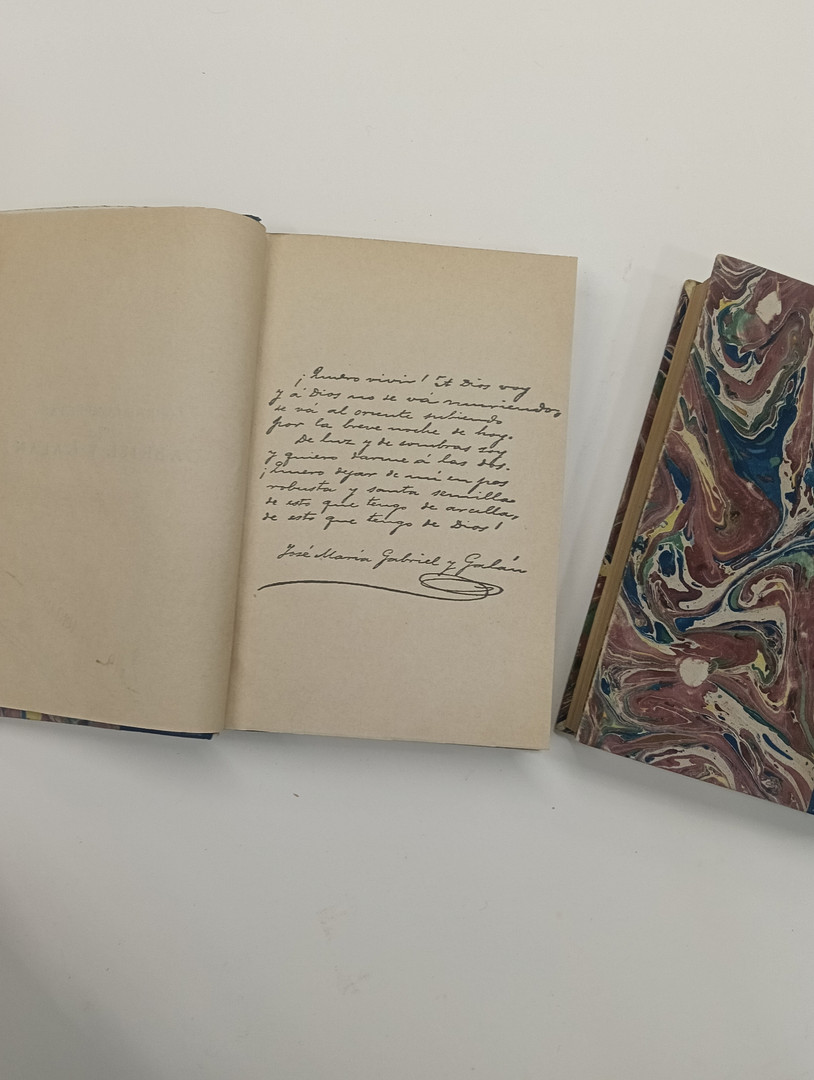 ¡Quiero vivir! A Dios voy
y á Dios no se vá muriendo,
se vá al oriente subiendo
por la breve noche de hoy.
De luz y de sombras soy
y quiero darme á las dos.
¡Quiero dejar de mí en pos
robusta y santa semilla
de esto que tengo de arcilla,
de esto que tengo de Dios!
José María Gabriel y Galán